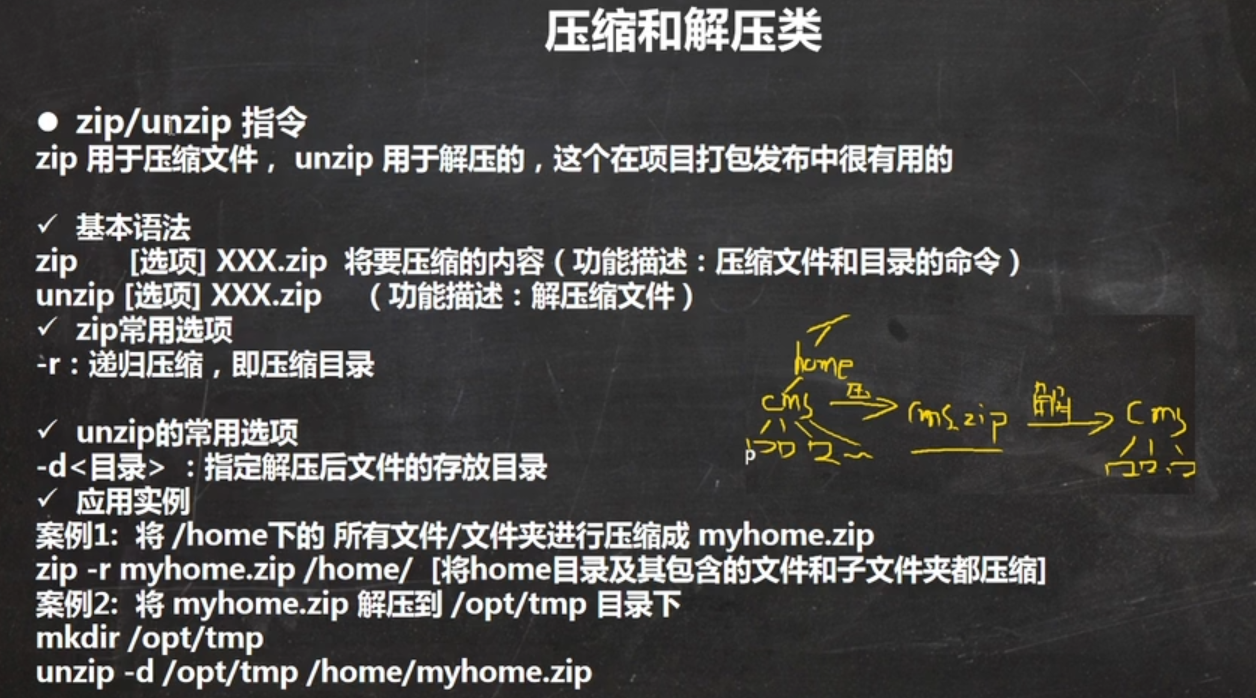 压缩和解压类
● zip/unzip 指令
zip 用于压缩文件， unzip 用于解压的，这个在项目打包发布中很有用的
✓ 基本语法
zip [选项] XXX.zip 将要压缩的内容（功能描述：压缩文件和目录的命令）
unzip [选项] XXX.zip （功能描述：解压缩文件）
✓ zip常用选项
-r：递归压缩，即压缩目录
✓ unzip的常用选项
-d<目录> ：指定解压后文件的存放目录
✓ 应用实例
案例1: 将 /home下的 所有文件/文件夹进行压缩成 myhome.zip
zip -r myhome.zip /home/ [将home目录及其包含的文件和子文件夹都压缩]
案例2: 将 myhome.zip 解压到 /opt/tmp 目录下
mkdir /opt/tmp
unzip -d /opt/tmp /home/myhome.zip
home
cms 压 cms.zip 解 cms
p